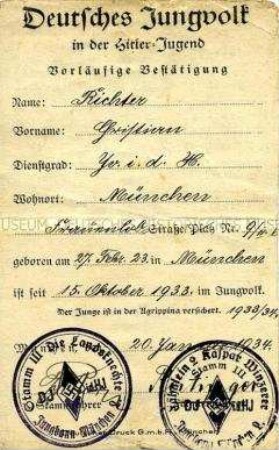 Deutsches Jungvolk
in der Hitler-Jugend
Vorläufige Bestätigung
Name: Richter
Vorname: Christian
Dienstgrad: i. d. H.
Wohnort: München
Frauenlob Straße, Platz Nr. 9/
geboren am 27. Febr. 23. in München
ist seit 15. Oktober 1933. im Jungvolk.
Der Junge ist in der Agrippina versichert. 1933/34.
20. Januar 1934.
Stamm III Die Landsknechte
DJ HJ
Jungbann München
Stammführer
Fähnlein 2 Kaspar Winzerer
Stamm III
DJ HJ
Druck G.m.b.H.